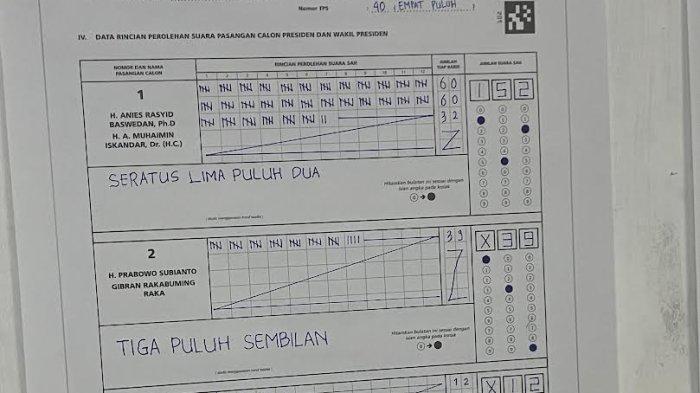 Nomor TPS : 40 ( EMPAT PULUH )
IV. DATA RINCIAN PEROLEHAN SUARA PASANGAN CALON PRESIDEN DAN WAKIL PRESIDEN
NOMOR DAN NAMA PASANGAN CALON
RINCIAN PEROLEHAN SUARA SAH
JUMLAH TIAP BARIS
JUMLAH SUARA SAH
1 2 3 4 5 6 7 8 9 10 11 12
1
H. ANIES RASYID
BASWEDAN, Ph.D
H. A. MUHAIMIN
ISKANDAR, Dr. (H.C.)
60
60
32
152
SERATUS LIMA PULUH DUA
Hitamkan bulatan ini sesuai dengan
isian angka pada kotak
( ditulis menggunakan huruf kapital )
2
H. PRABOWO SUBIANTO
GIBRAN RAKABUMING
RAKA
39
X39
TIGA PULUH SEMBILAN
Hitamkan bulatan ini sesuai dengan
isian angka pada kotak
12
X12